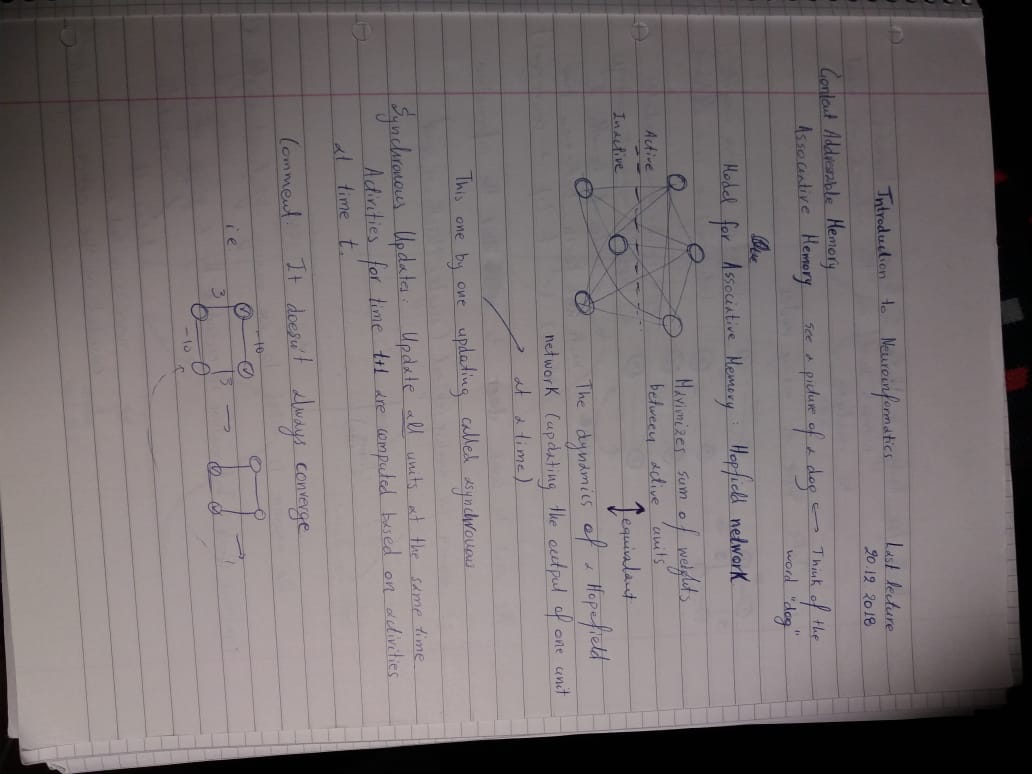 Introduction to Neuroinformatics
Last lecture
20.12 2018
Content Addressable Memory
Associative Memory see a picture of a dog ← Think of the
word "dog"
Model for Associative Memory: Hopfield network
Maximizes sum of weights
between active units
Active
Inactive
↕ equivalant
The dynamics of a Hopefield
network (updating the output of one unit
at a time)
This one by one updating called asynchronous
Synchronous Updates: Update all units at the same time
Activities for time t+1 are computed based on activities
at time t.
Comment: It doesn't always converge
ie
-10
3 3 → →
-10